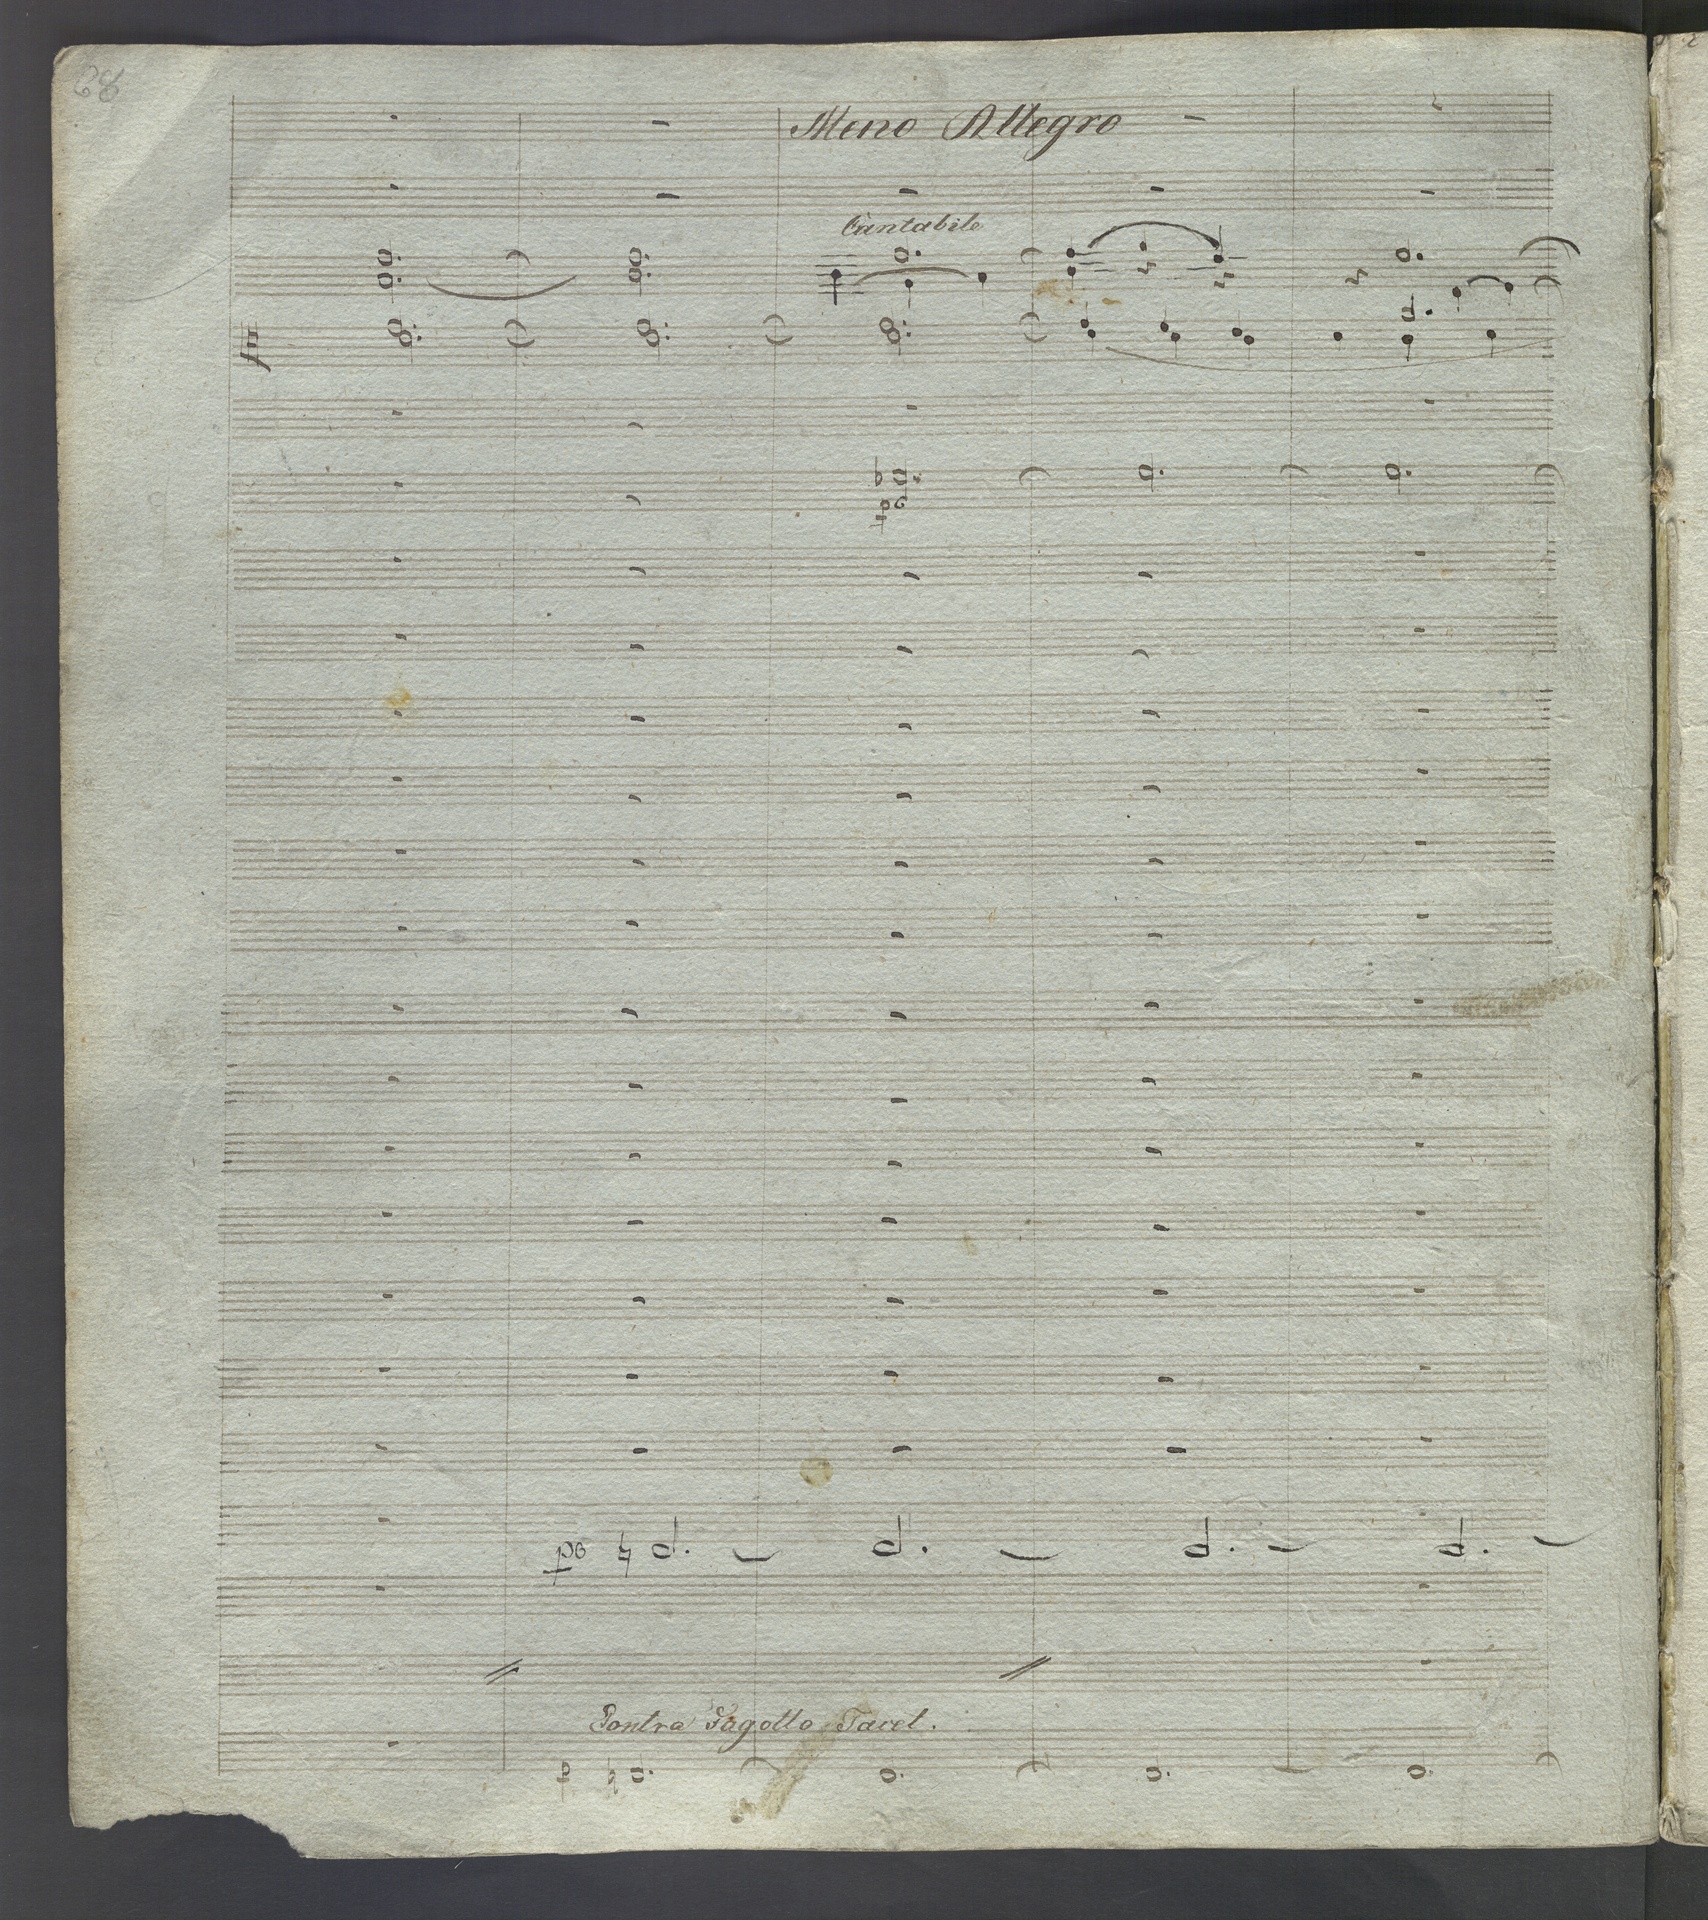 68
Meno Allegro
Cantabile
po
po
Contra Fagotto Tacet.
p